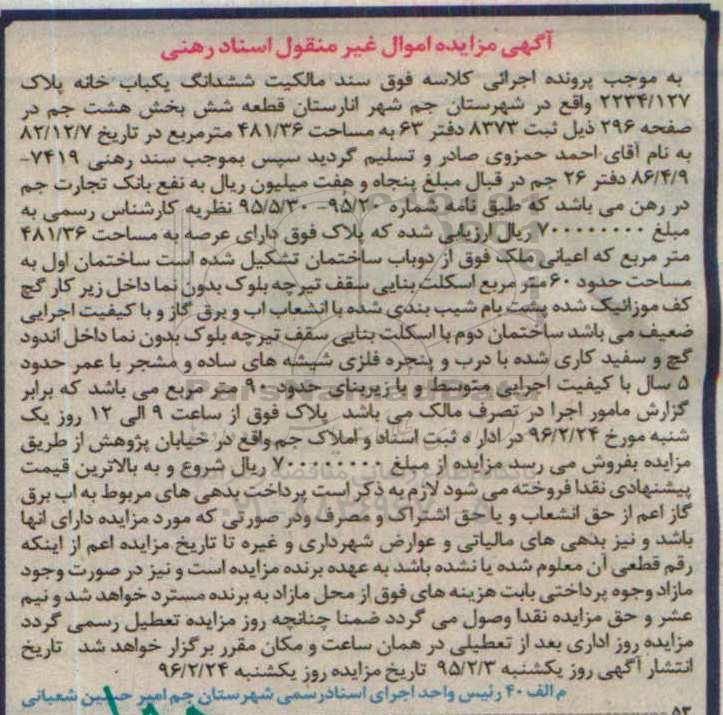 آگهی مزایده اموال غیر منقول اسناد رهنی
به موجب پرونده اجرائی کلاسه فوق سند مالکیت ششدانگ یکباب خانه پلاک
۲۲۳۴/۱۲۷ واقع در شهرستان جم شهر انارستان قطعه شش بخش هشت جم در
صفحه ۲۹۶ ذیل ثبت ۸۳۷۳ دفتر ۶۳ به مساحت ۴۸۱/۳۶ مترمربع در تاریخ ۸۲/۱۲/۷
به نام آقای احمد حمزوی صادر و تسلیم گردید سپس بموجب سند رهنی ۷۴۱۹-
۸۶/۴/۹ دفتر ۲۶ جم در قبال مبلغ پنجاه و هفت میلیون ریال به نفع بانک تجارت جم
در رهن می باشد که طبق نامه شماره ۹۵/۲۰- ۹۵/۵/۳۰ نظریه کارشناس رسمی به
مبلغ ۷۰۰۰۰۰۰۰۰ ریال ارزیابی شده که پلاک فوق دارای عرصه به مساحت ۴۸۱/۳۶
متر مربع که اعیانی ملک فوق از دوباب ساختمان تشکیل شده است ساختمان اول به
مساحت حدود ۶۰ متر مربع اسکلت بنایی سقف تیرچه بلوک بدون نما داخل زیر کار گچ
کف موزائیک شده پشت بام شیب بندی شده با انشعاب اب و برق گاز و با کیفیت اجرایی
ضعیف می باشد ساختمان دوم با اسکلت بنایی سقف تیرچه بلوک بدون نما داخل اندود
گچ و سفید کاری شده با درب و پنجره فلزی شیشه های ساده و مشجر با عمر حدود
۵ سال با کیفیت اجرایی متوسط و با زیربنای حدود ۹۰ متر مربع می باشد که برابر
گزارش مامور اجرا در تصرف مالک می باشد پلاک فوق از ساعت ۹ الی ۱۲ روز یک
شنبه مورخ ۹۶/۲/۲۴ در اداره ثبت اسناد و املاک جم واقع در خیابان پژوهش از طریق
مزایده بفروش می رسد مزایده از مبلغ ۷۰۰۰۰۰۰۰۰ ریال شروع و به بالاترین قیمت
پیشنهادی نقدا فروخته می شود لازم به ذکر است پرداخت بدهی های مربوط به اب برق
گاز اعم از حق انشعاب و یا حق اشتراک و مصرف ودر صورتی که مورد مزایده دارای انها
باشد و نیز بدهی های مالیاتی و عوارض شهرداری و غیره تا تاریخ مزایده اعم از اینکه
رقم قطعی آن معلوم شده یا نشده باشد به عهده برنده مزایده است و نیز در صورت وجود
مازاد وجوه پرداختی بابت هزینه های فوق از محل مازاد به برنده مسترد خواهد شد و نیم
عشر و حق مزایده نقدا وصول می گردد ضمنا چنانچه روز مزایده تعطیل رسمی گردد
مزایده روز اداری بعد از تعطیلی در همان ساعت و مکان مقرر برگزار خواهد شد تاریخ
انتشار آگهی روز یکشنبه ۹۵/۲/۳ تاریخ مزایده روز یکشنبه ۹۶/۲/۲۴
م الف ۴۰ رئیس واحد اجرای اسنادرسمی شهرستان جم امیر حسین شعبانی
۵۳
ParsNamadData